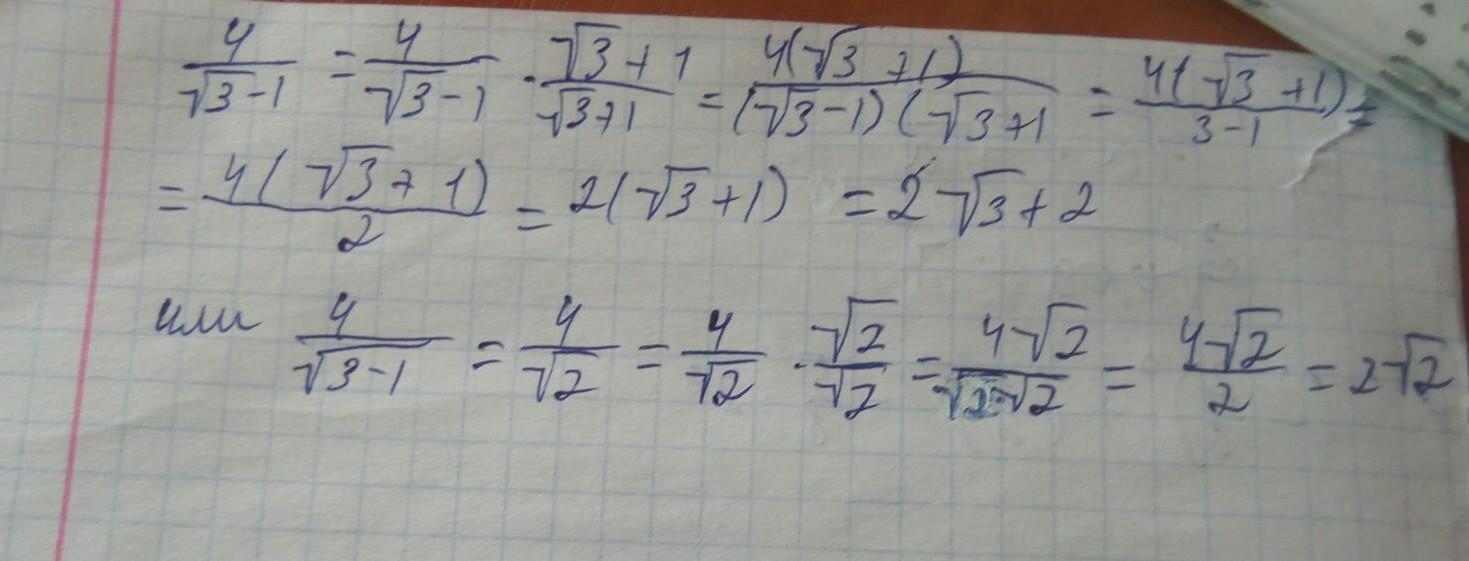 4/(√3-1) = 4/(√3-1) · (√3+1)/(√3+1) = 4(√3+1)/((√3-1)(√3+1) = 4(√3+1)/(3-1) =
= 4(√3+1)/2 = 2(√3+1) = 2√3+2
или 4/√(3-1) = 4/√2 = 4/√2 · √2/√2 = 4√2/(√2·√2) = 4√2/2 = 2√2